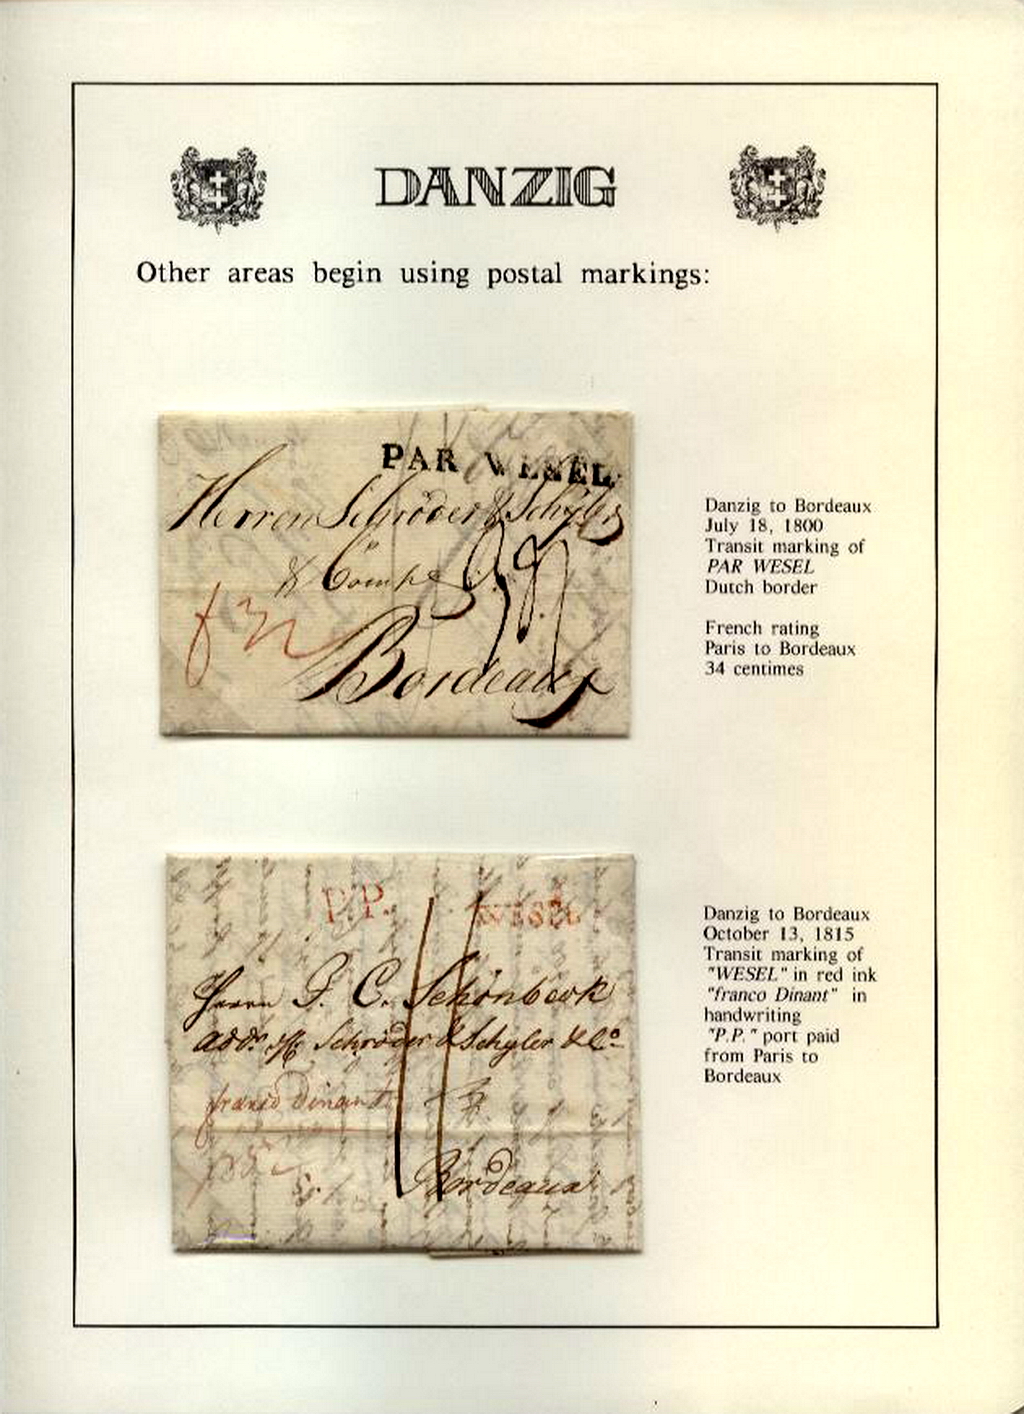 DANZIG
Other areas begin using postal markings:
PAR WESEL
Herren Schröder & Schÿler
& Comp
Bordeaux
Danzig to Bordeaux
July 18, 1800
Transit marking of
PAR WESEL
Dutch border
French rating
Paris to Bordeaux
34 centimes
P.P. WESEL
Herrn J. C. Schönbeck
addr. Schröder & Schyler & Co
franco Dinant
Bordeaux
Danzig to Bordeaux
October 13, 1815
Transit marking of
"WESEL" in red ink
"franco Dinant" in
handwriting
"P.P." port paid
from Paris to
Bordeaux